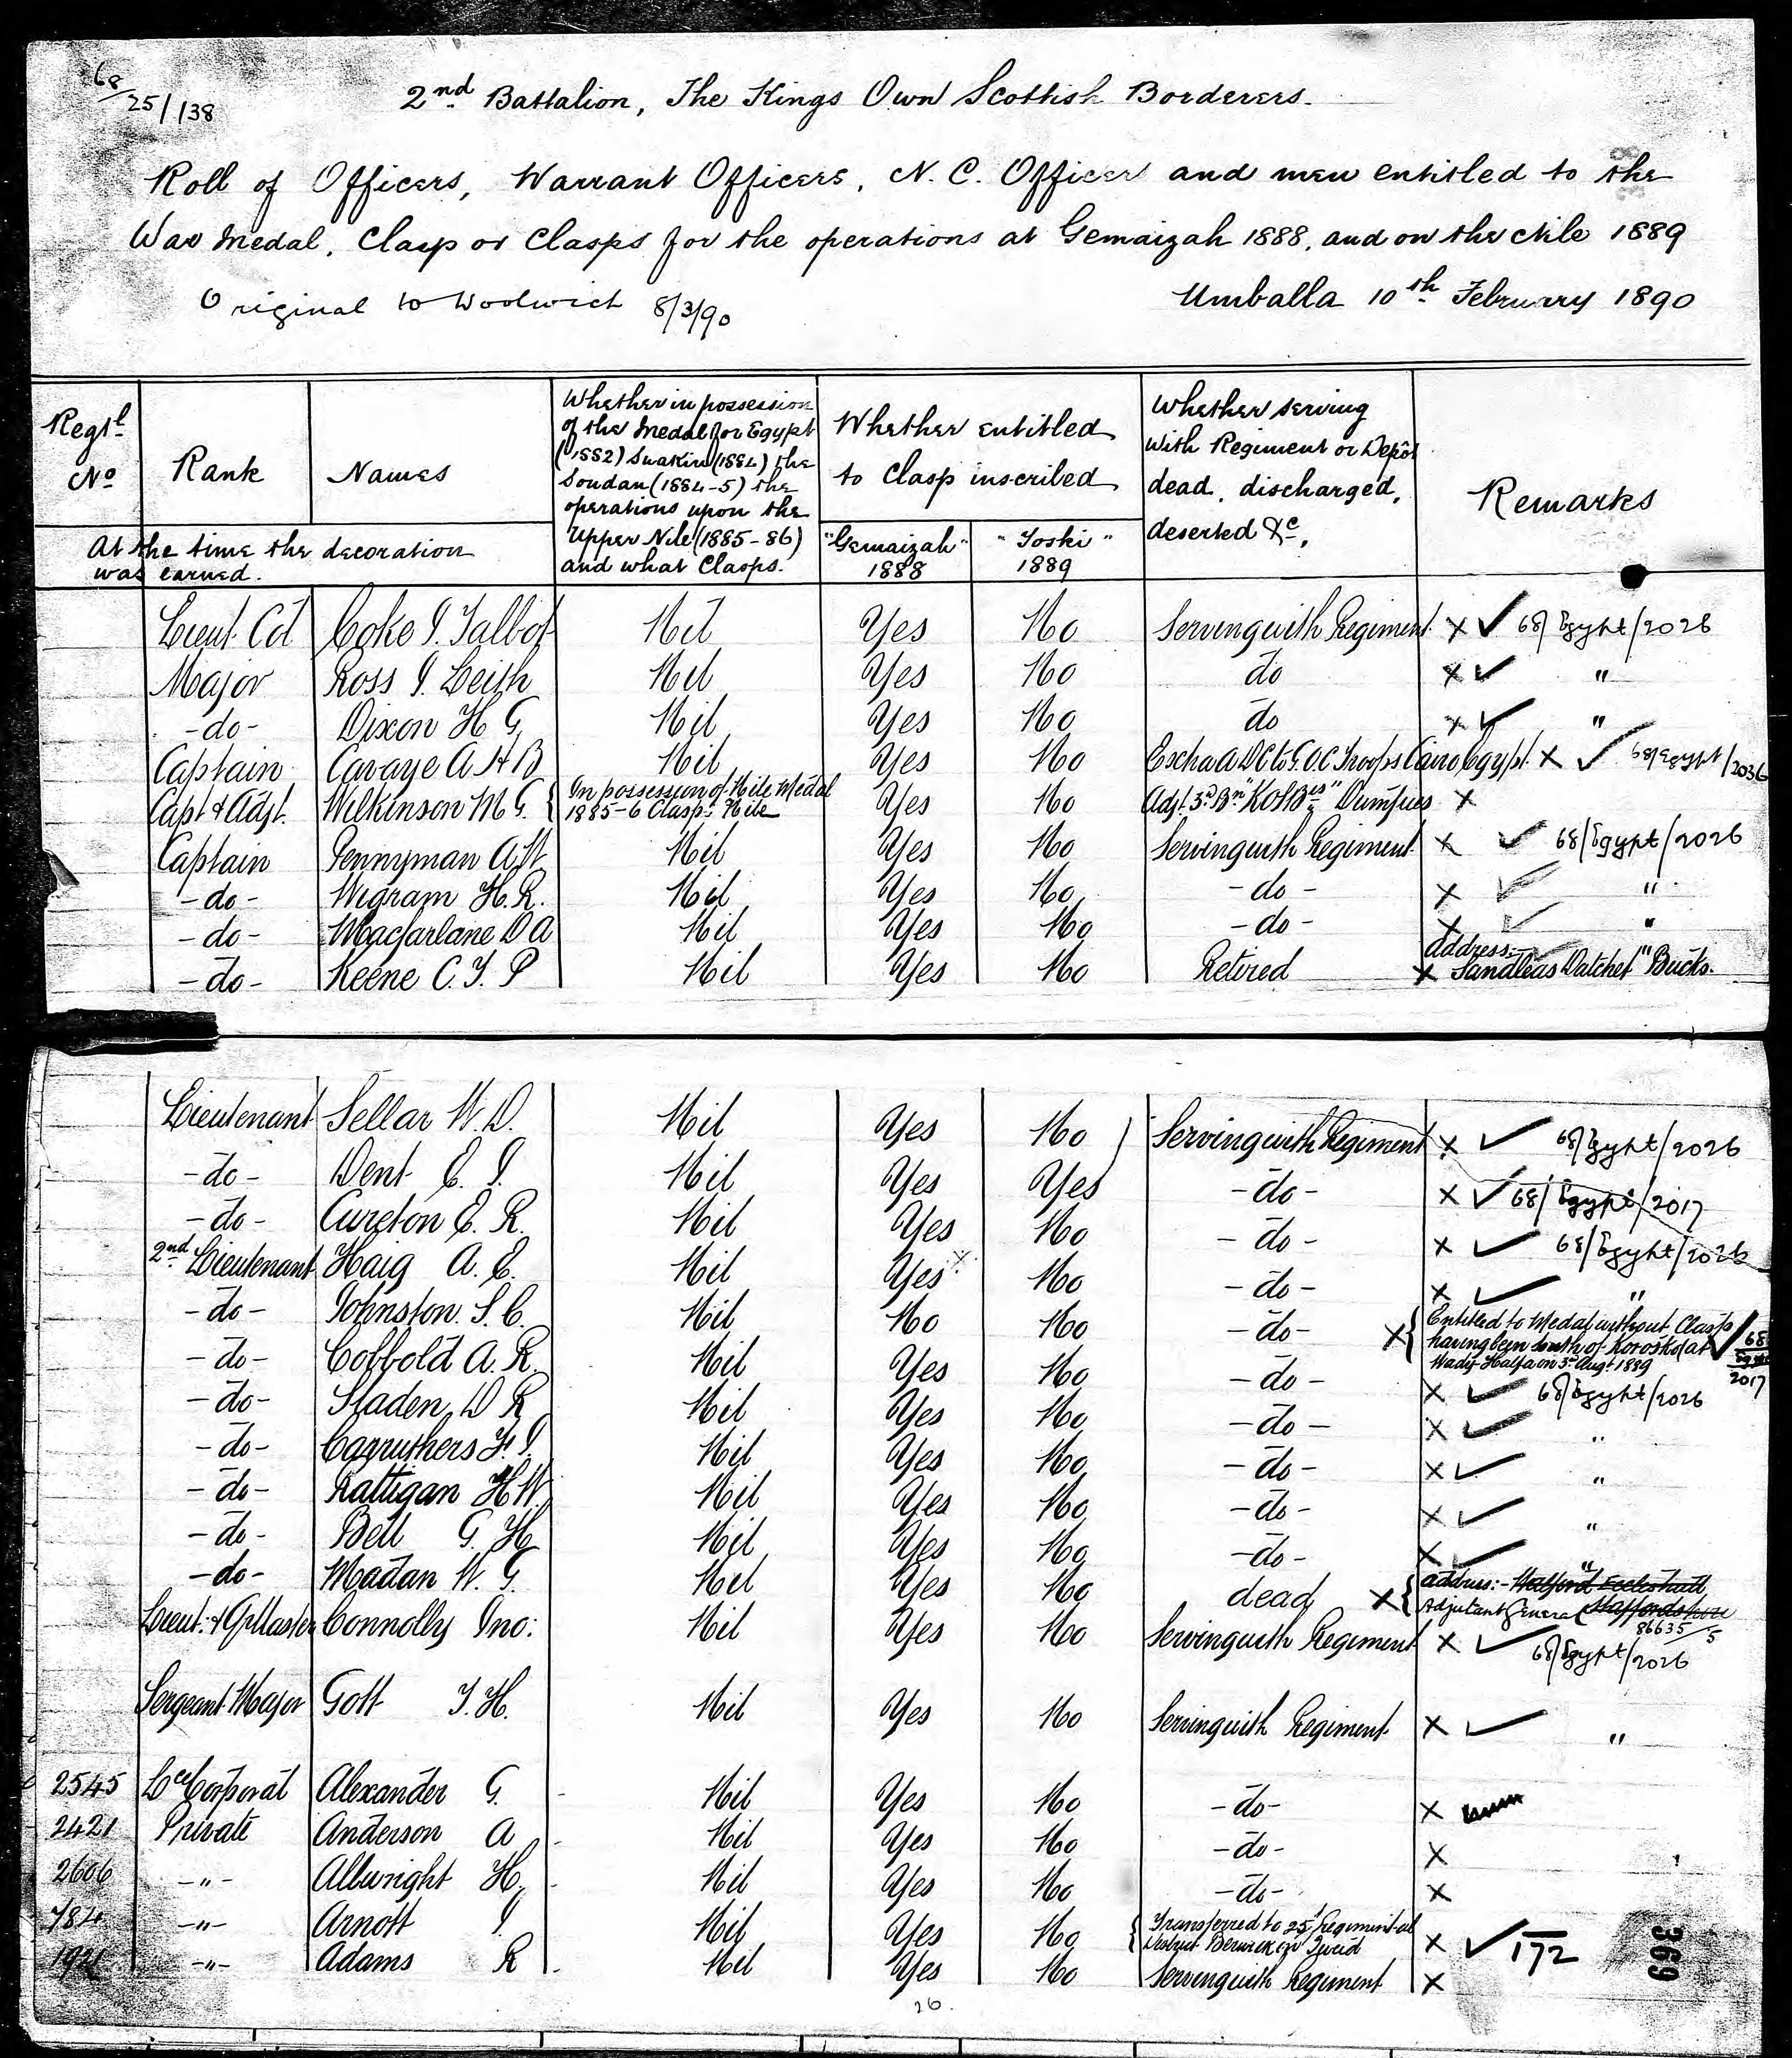 68/25/138
2nd Battalion, The Kings Own Scottish Borderers.
Roll of Officers, Warrant Officers, N. C. Officers and men entitled to the
War Medal, Clasp or Clasps for the operations at Gemaizah 1888, and on the Nile 1889
Original to Woolwich 8/3/90 Umballa 10th February 1890
Regtl No Rank Names Whether in possession of the Medal for Egypt (1882) Suakin (1884) the Soudan (1884-5) the operations upon the Upper Nile (1885-86) and what Clasps. Whether entitled to Clasp inscribed Whether serving with Regiment or Depôt dead, discharged, deserted &c, Remarks
At the time the decoration was earned. "Gemaizah" 1888 "Toski" 1889
Lieut Col Coke J. Talbot Nil Yes No Serving with Regiment x ✓ 68/Egypt/2026
Major Ross J. Leith Nil Yes No do x ✓ "
-do- Dixon H G, Nil Yes No do x ✓ "
Captain Cavaye A H B Nil Yes No Extra ADC to G.O.C Troops Cairo Egypt. x ✓ 68/Egypt/2036
Capt & Adjt. Wilkinson M G. { In possession of Nile Medal 1885-6 Clasp: Nile Yes No Adjt. 3rd Bn "KOSBrs" Dumfries x
Captain Pennyman A W Nil Yes No Serving with Regiment x ✓ 68/Egypt/2026
-do- Wigram H. R. Nil Yes No -do- x ✓ "
-do- Macfarlane D A Nil Yes No -do- x ✓ "
-do- Keene C. T. P Nil Yes No Retired x address:- Sandleas Datchet" Bucks.
Lieutenant Sellar W. D. Nil Yes No Serving with Regiment x ✓ 68/Egypt/2026
-do- Dent E. J. Nil Yes Yes -do- x ✓ 68/Egypt/2017
-do- Cureton E. R. Nil Yes No -do- x ✓ 68/Egypt/2026
2nd Lieutenant Haig A. E. Nil Yes x No -do- x ✓ "
-do- Johnston. S. C. Nil No No -do- x { Entitled to Medal without Clasp having been South of Korosko (at Wady Halfa on 3rd Augt 1889 ✓ 68/Egypt/2017
-do- Cobbold A. R. Nil Yes No -do- x ✓ 68/Egypt/2026
-do- Sladen D R Nil Yes No -do- x ✓ "
-do- Carruthers F J. Nil Yes No -do- x ✓ "
-do- Rattigan H W Nil Yes No -do- x ✓ "
-do- Bell G. H Nil Yes No -do- x ✓ "
-do- Madan W. G. Nil Yes No dead x { address:- Walford Eccleshall Staffordshire Adjutant General 86635/5
Lieut: & Qr Master Connolly Jno: Nil Yes No Serving with Regiment x ✓ 68/Egypt/2026
Sergeant Major Gott T. H. Nil Yes No Serving with Regiment x ✓ "
2545 Lce Corporal Alexander G. Nil Yes No -do- x
2421 Private Anderson A Nil Yes No -do- x
2606 -"- Allwright H. Nil Yes No -do- x
784 -"- Arnott J Nil Yes No { Transferred to 25th Regimental District Berwick on Tweed x ✓ 172
1921 -"- Adams R Nil Yes No Serving with Regiment x
26.
369